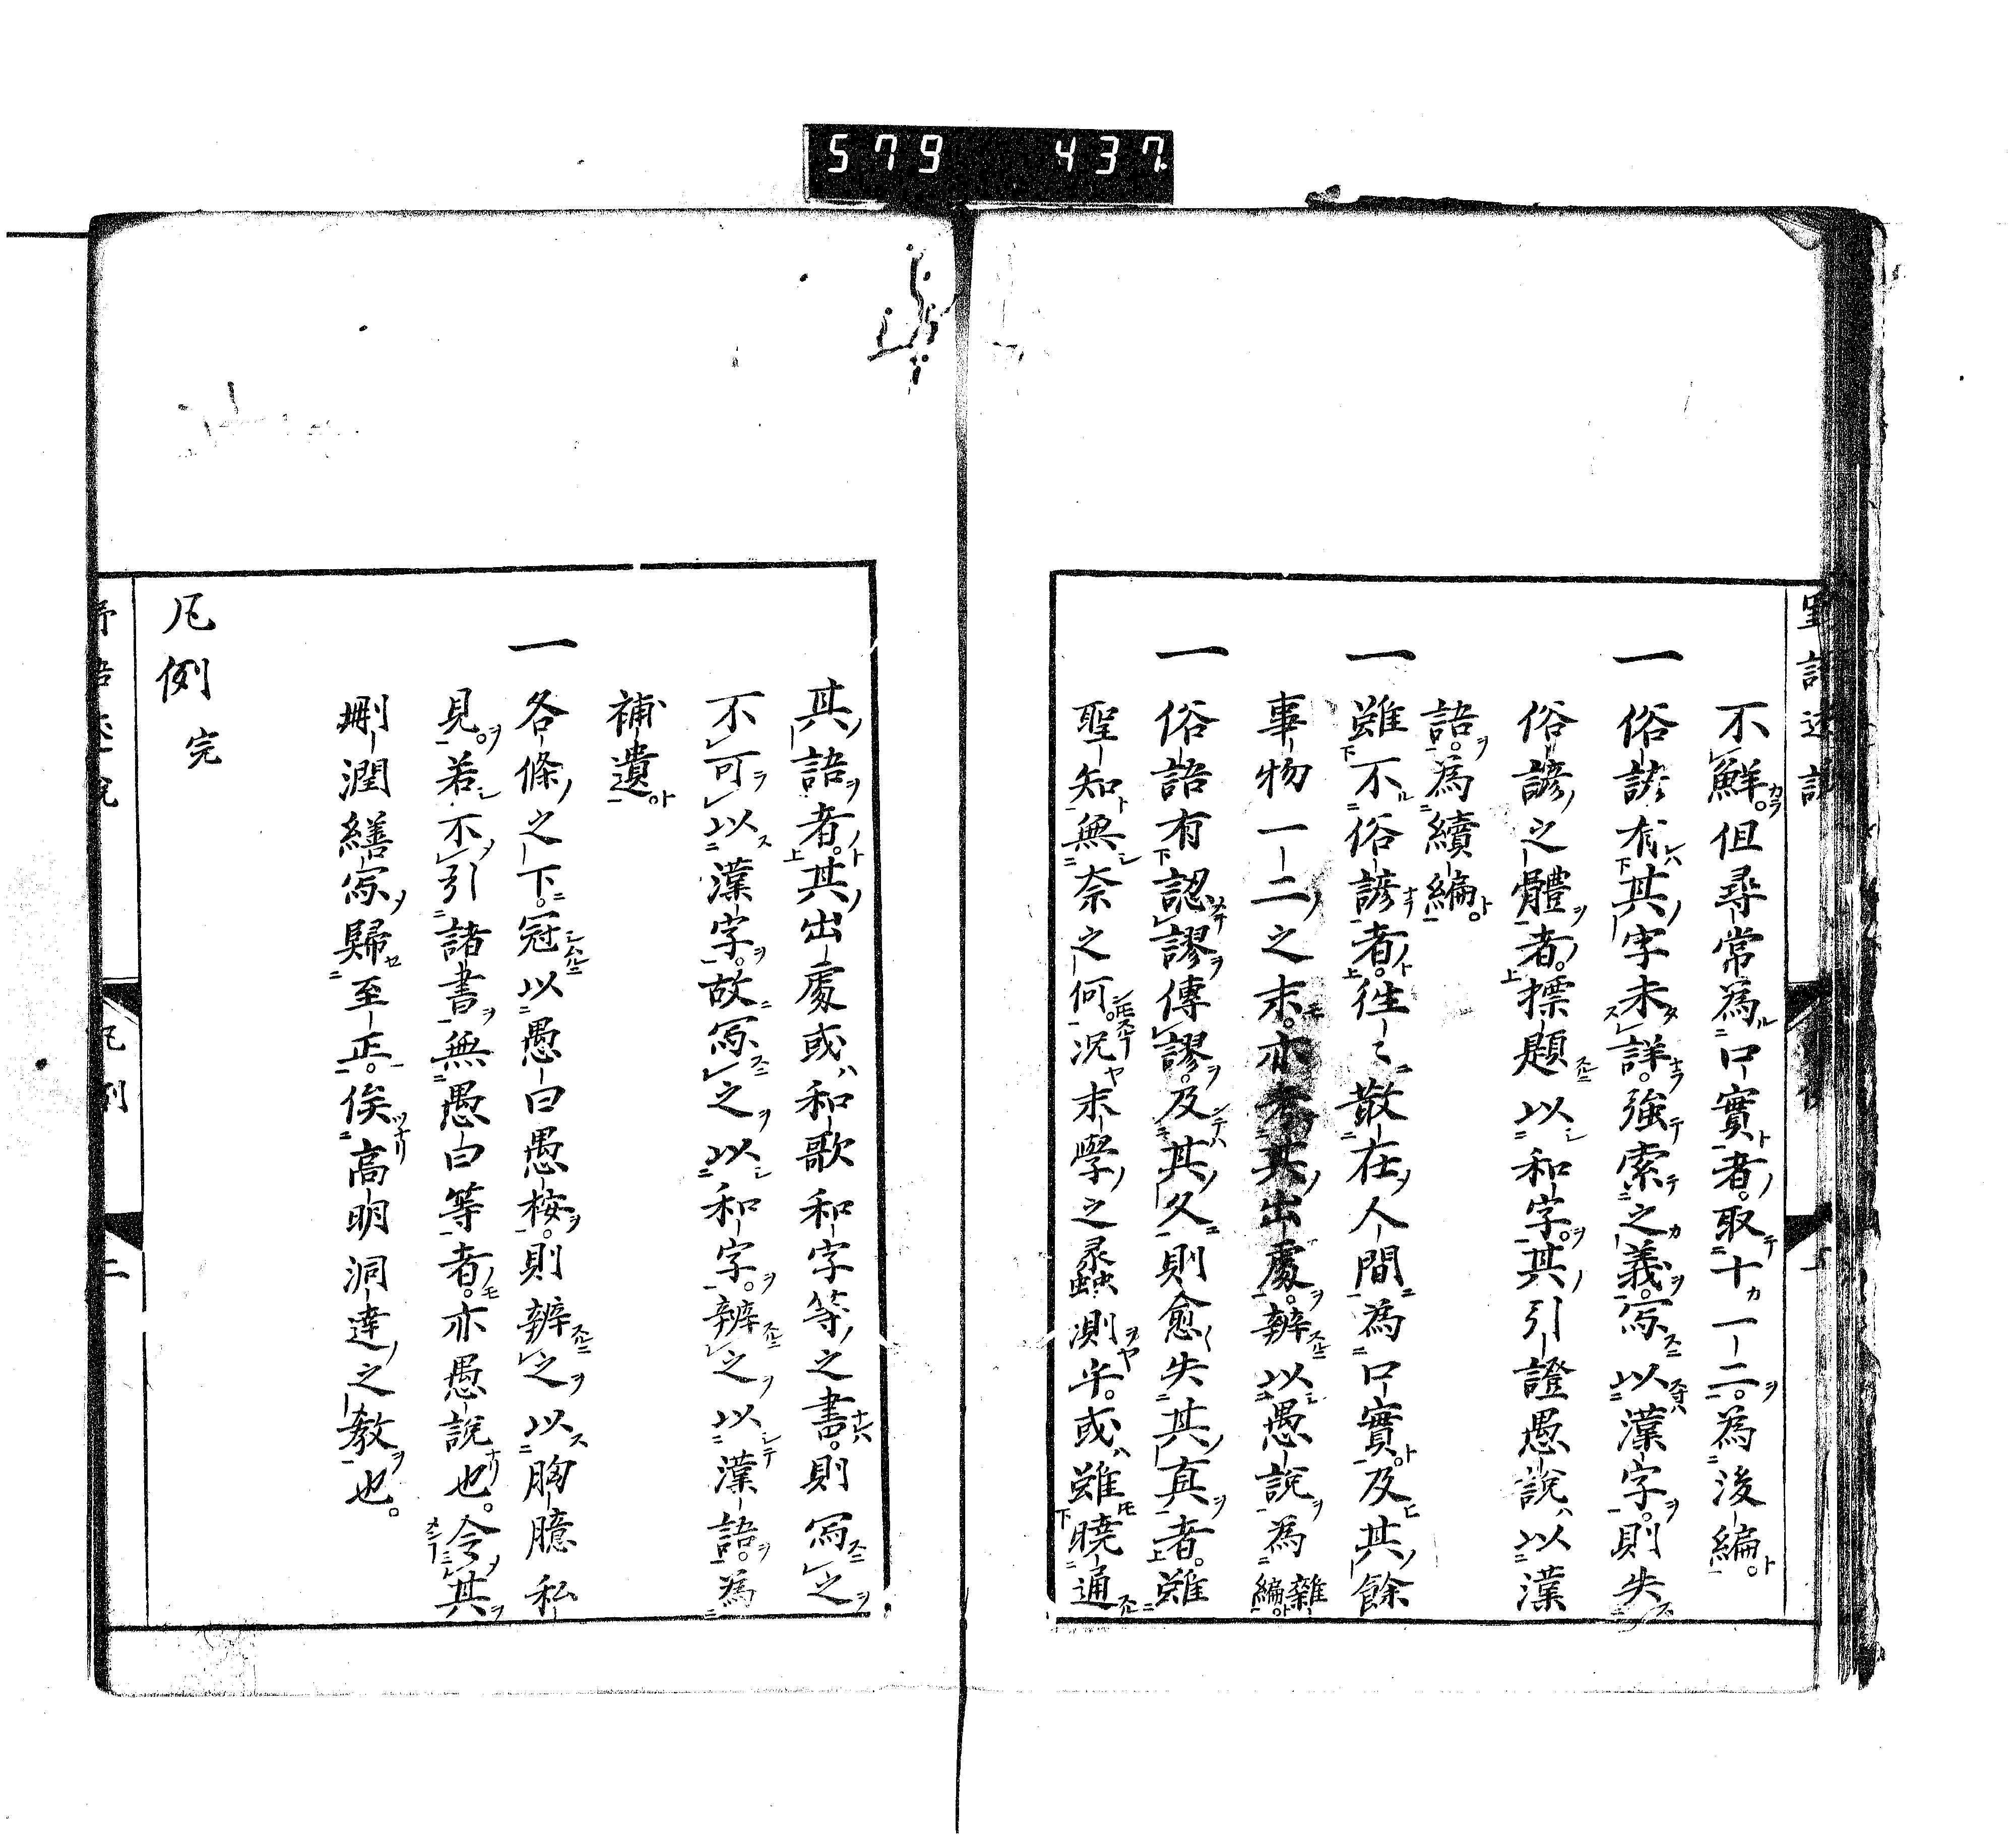 579 437
不鮮。但尋常為口實者。取十一二。為後編。
一俗諺有其字未詳。強索之義。寫以漢字。則失
俗諺之體者。摽題以和字。其引證愚說以漢
語。為續編。
一雖不俗諺者。徃〻散在人間為口實及其餘
事物一二之末。亦考其出處。辨以愚說為雜編。
一俗語有認謬傳謬。及其久則愈失其真者。雖
聖知無奈之何。況末學之蠡測乎。或雖曉通
其語者。其出處或和歌和字等之書。則寫之
不可以漢字。故寫之以和字。辨之以漢語。為
補遺
一各條之下。冠以愚曰愚桉。則辨之以胸臆私
見。若不引諸書無愚曰等者。亦愚說也。令其
刪潤繕寫歸至正。俟高明洞達之教也。
凡例完
凡例
二